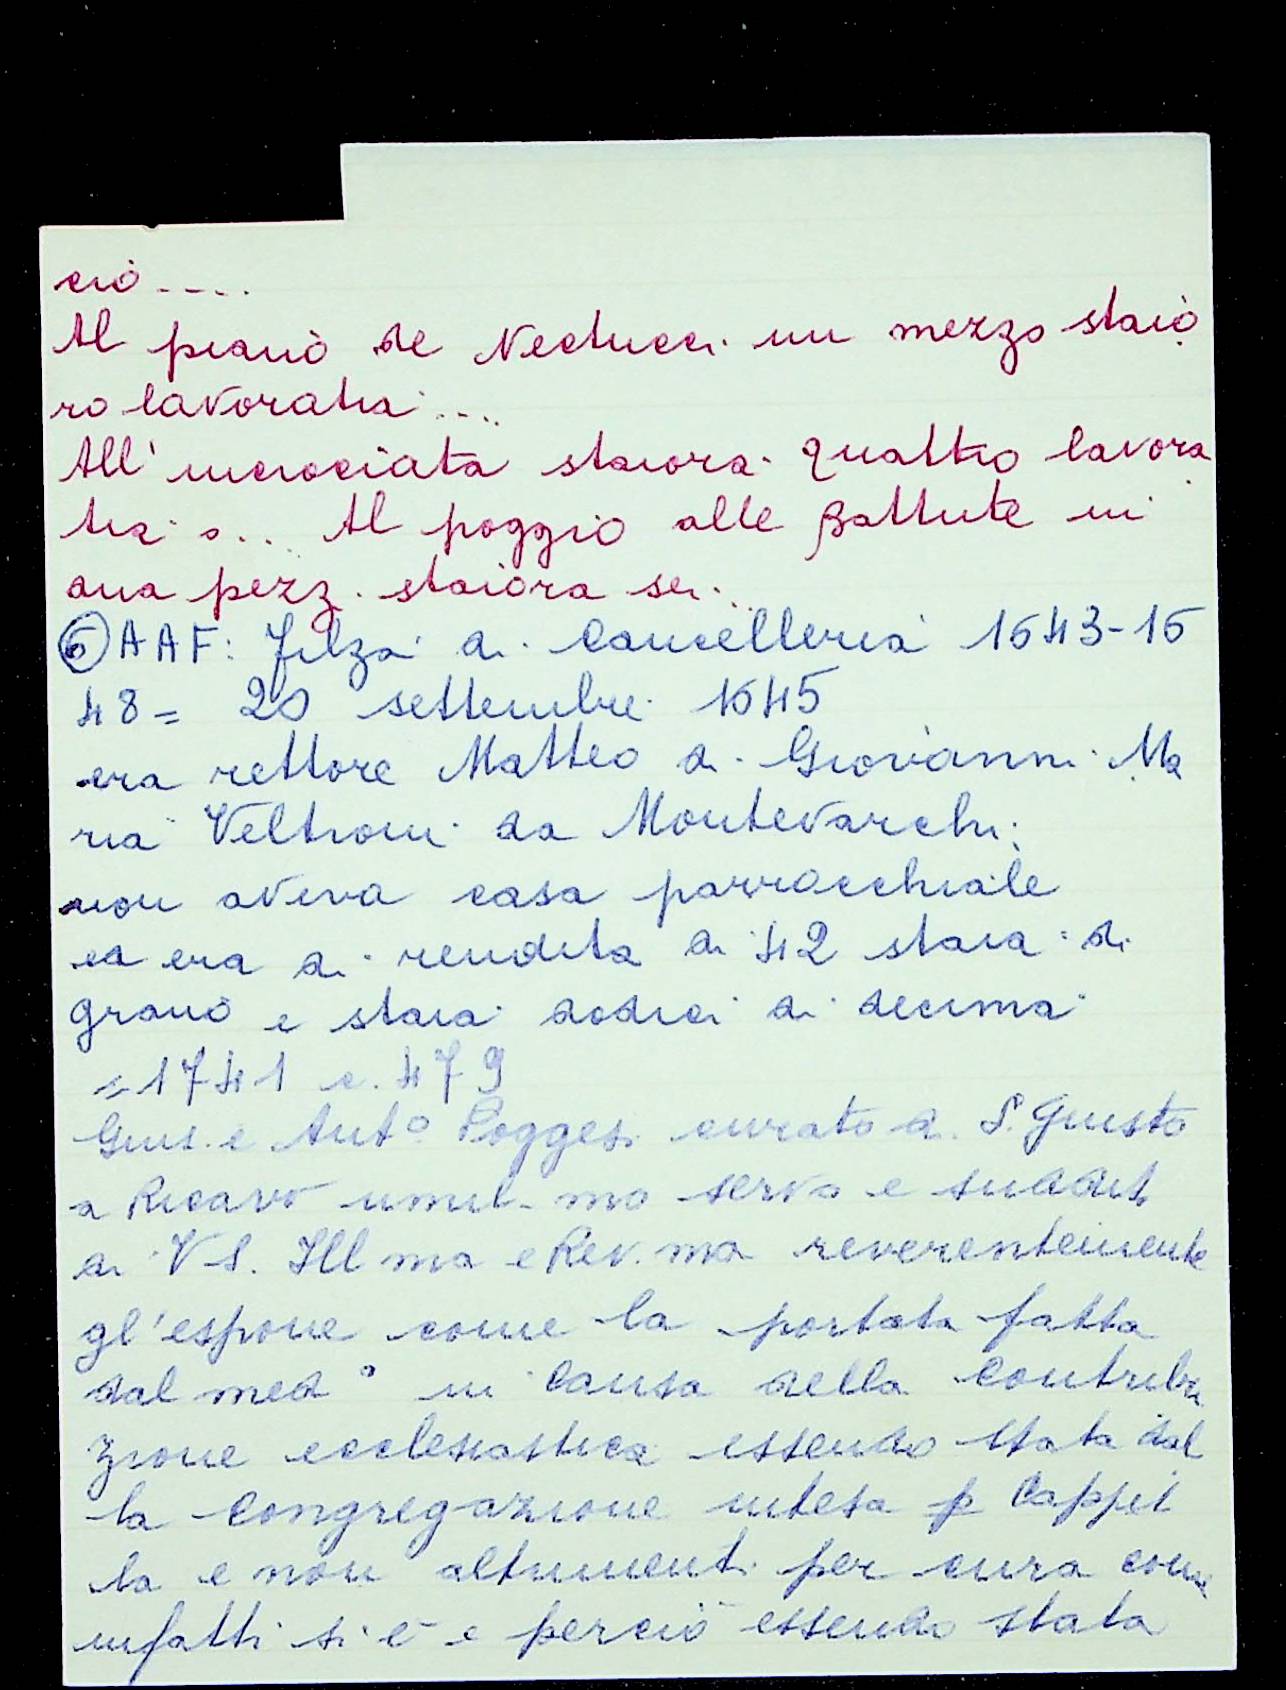 ciò ....
Al piano de Neclucci un mezzo staio
ro lavoratia ....
All' incrociata staiora quattro lavora
tia ... Al poggio alle Battute in
una pezz. staiora sei...
⑥ AAF: Filza di Cancelleria 1643-16
48 = 20 settembre 1645
era rettore Matteo di Giovanni Ma
ria Veltroni da Montevarchi;
non aveva casa parrocchiale
ed era di rendita di 42 staia di
grano e staia dodici di decima
= 1741 c. 479
Gius. e Ant.º Poggesi curato di S. Giusto
a Ricavo umil. mo servo e suddit
di VS. Ill ma e Rev. ma reverentemente
gl'espone come la portata fatta
dal med º in causa della Contribu
zione ecclesiastica essendo stata dal
la Congregazione intesa p Cappel
la e non altrimenti per cura come
infatti si è e perciò essendo stata